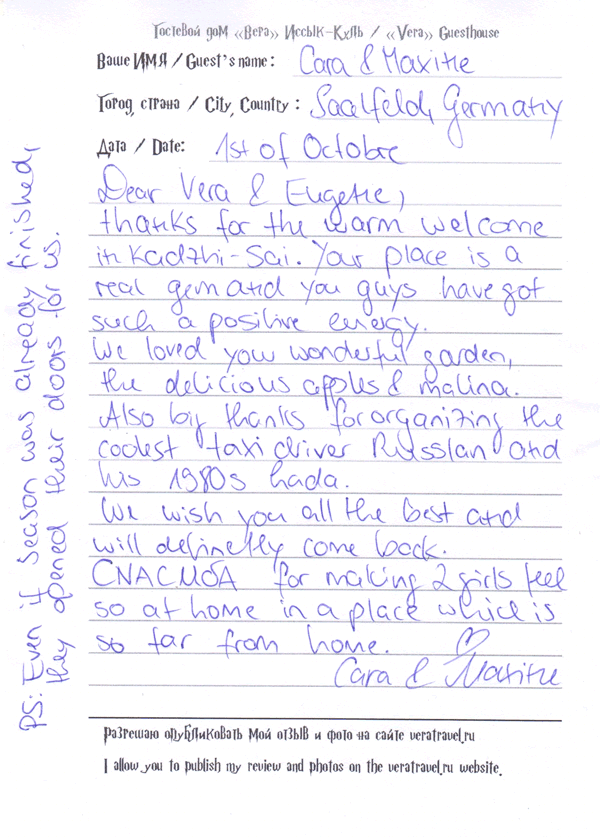 Гостевой дом «Вера» Иссык-Кхль / «Vera» Guesthouse
Ваше ИМЯ / Guest's name: Cara & Maxine
Город, страна / City, Country : Saalfeld, Germany
Дата / Date: 1st of Octobre
Dear Vera & Eugene,
thanks for the warm welcome
in Kadzhi-Sai. Your place is a
real gem and you guys have got
such a positive energy.
We loved your wonderful garden,
the delicious apples & malina.
Also big thanks for organizing the
coolest taxi driver Russlan and
his 1980s Lada.
We wish you all the best and
will definetly come back.
СПАСИБА for making 2 girls feel
so at home in a place which is
so far from home. ♡
Cara & Maxine
PS: Even if season was already finished,
they opened their doors for us.
Разрешаю опубликовать мой отзыв и фото на сайте veratravel.ru
I allow you to publish my review and photos on the veratravel.ru website.